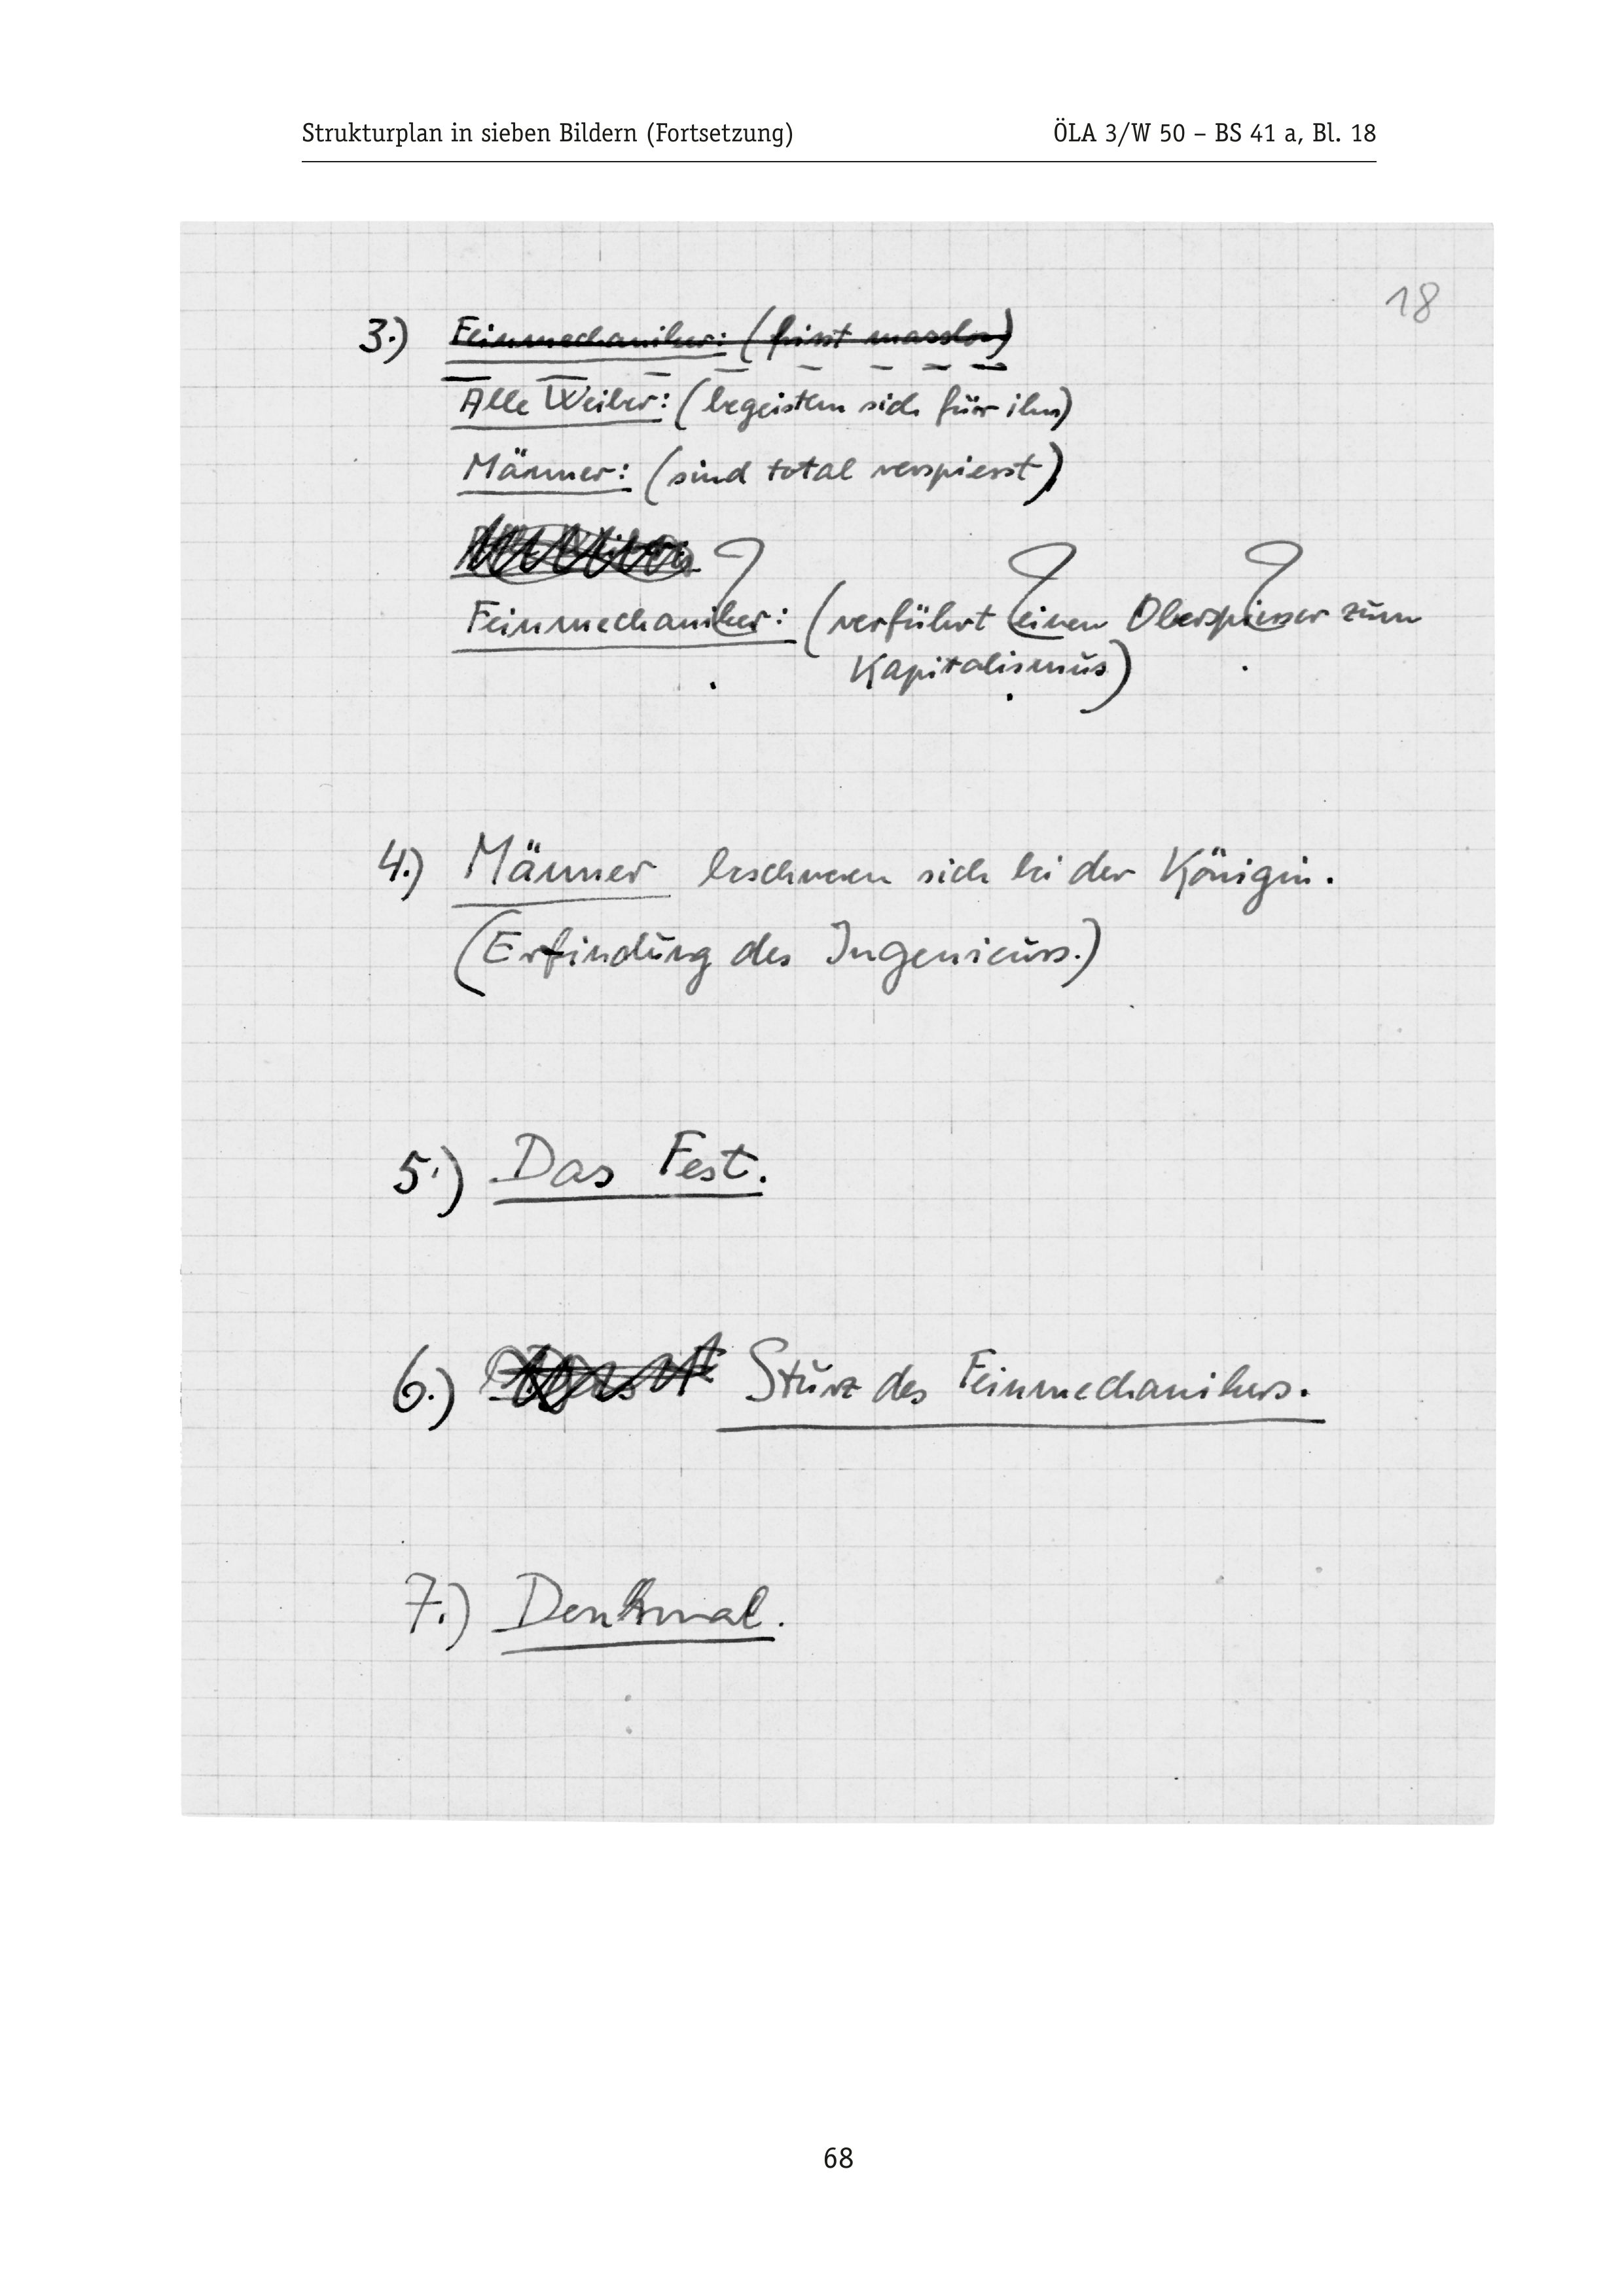 Strukturplan in sieben Bildern (Fortsetzung) ÖLA 3/W 50 – BS 41 a, Bl. 18
18
3.) Feinmechaniker: (frisst masslos)
Alle Weiber: (begeistern sich für ihn)
Männer: (sind total verspiesst)
Feinmechaniker: (verführt einen Oberspiesser zum
Kapitalismus)
? ? ?
4.) Männer beschweren sich bei der Königin.
(Erfindung des Ingenieurs.)
5.) Das Fest.
6.) Sturz des Feinmechanikers.
7.) Denkmal.
68